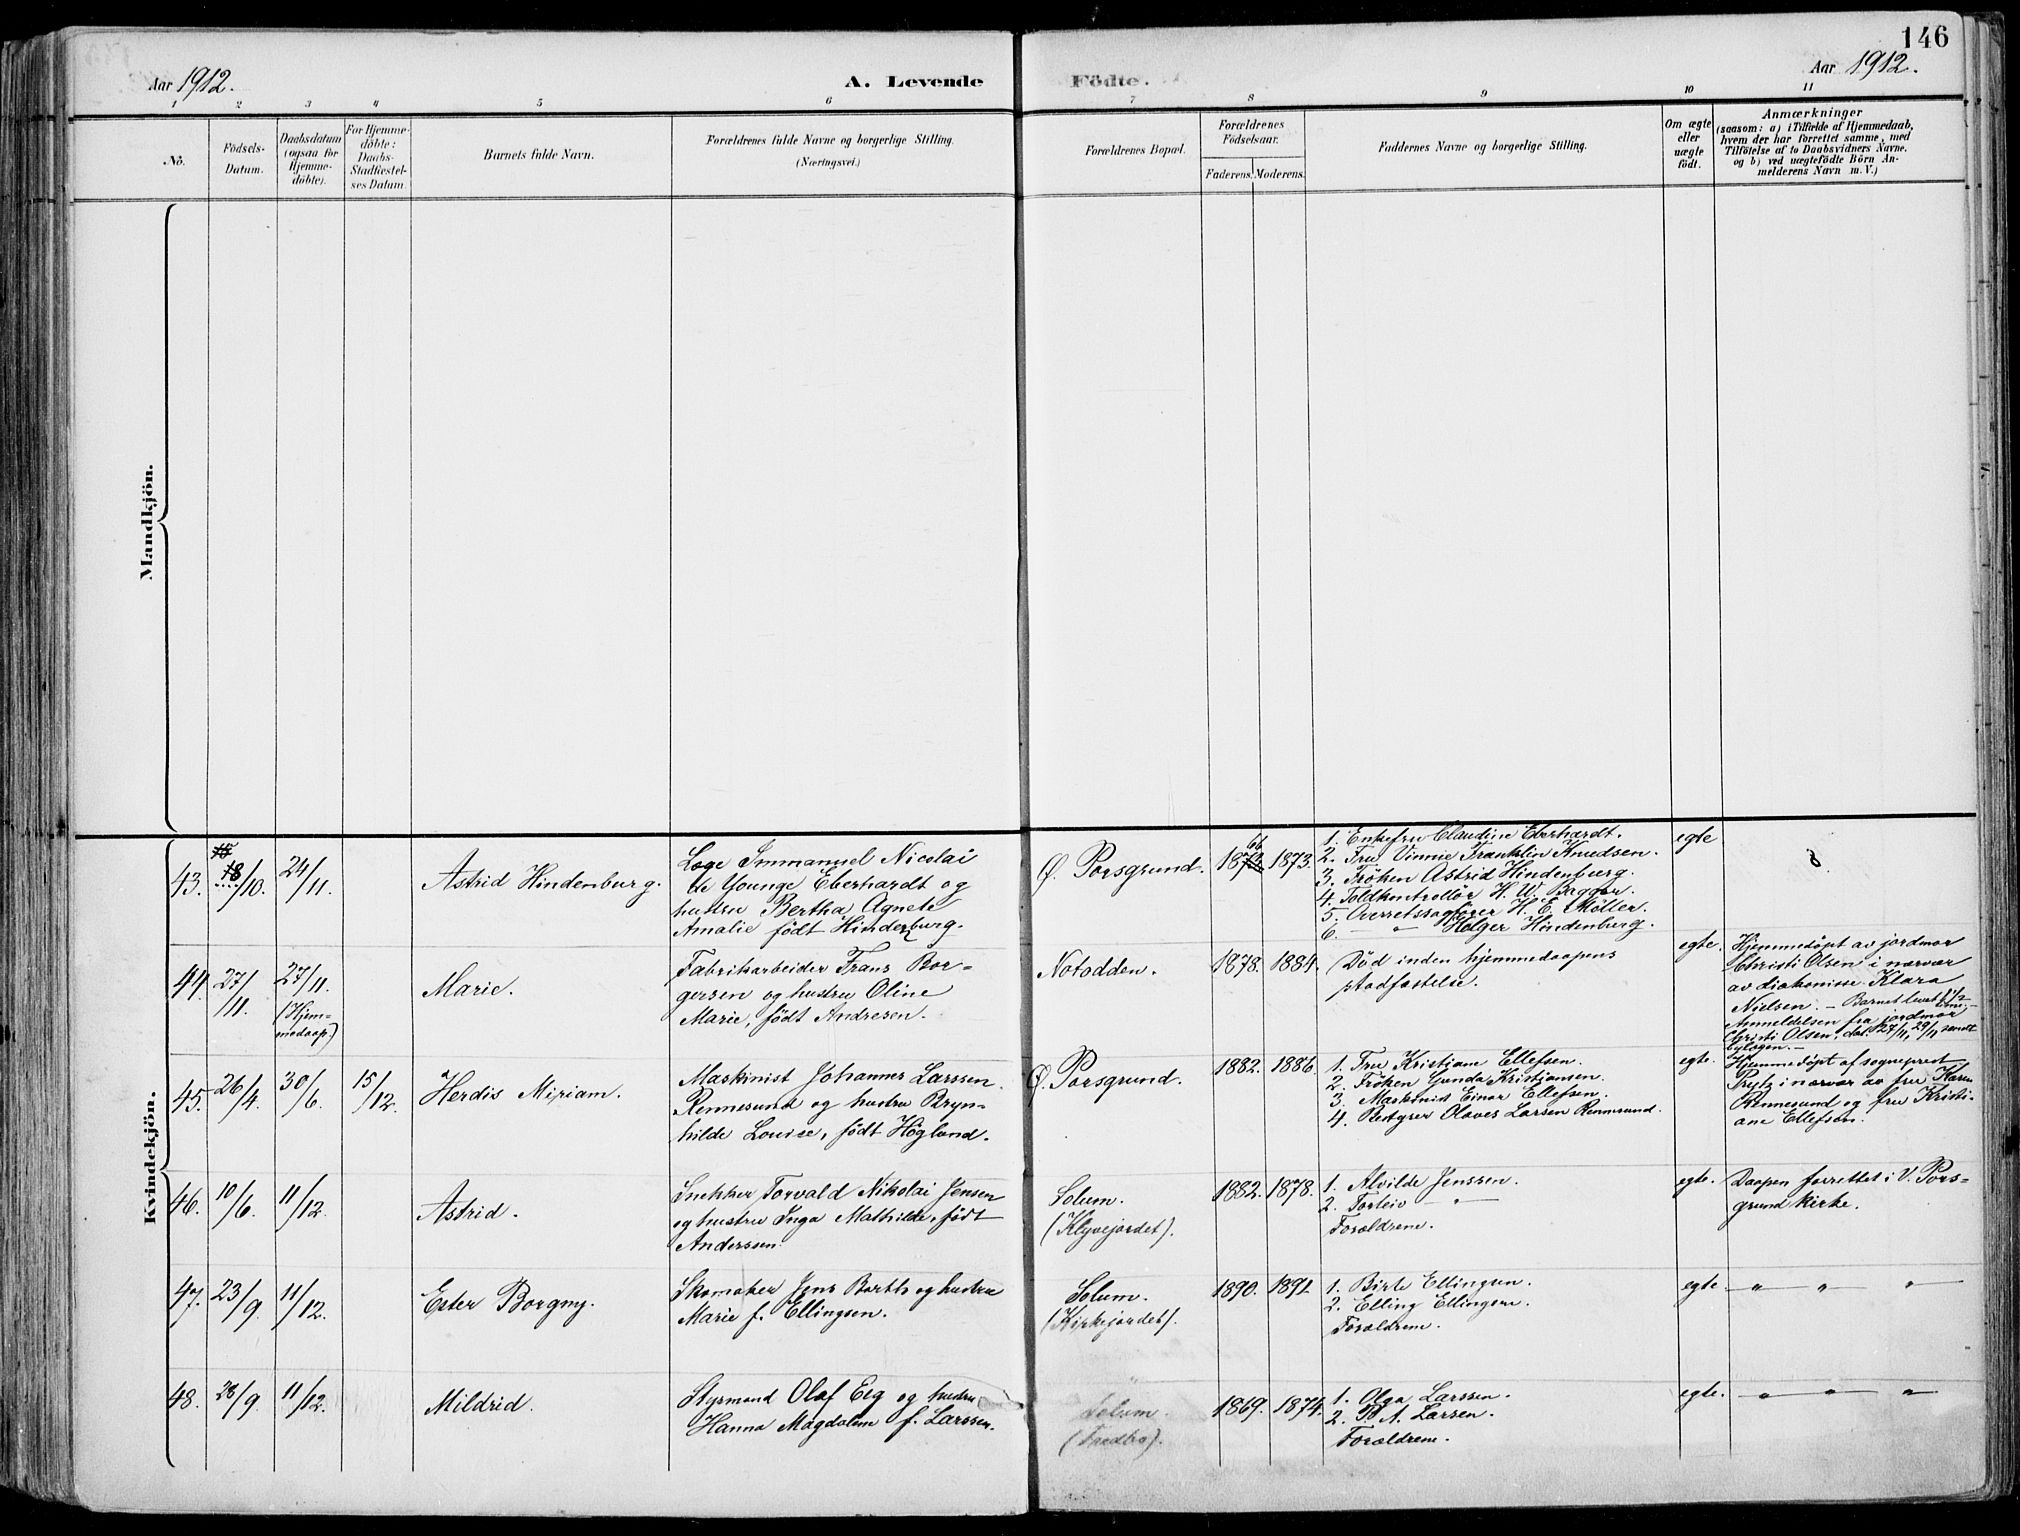 146
Aar 1912.
A. Levende Födte.
Aar 1912.
1 2 3 4 5 6 7 8 9 10 11
No.
Födsels-
Datum.
Daabsdatum
(ogsaa for
Hjemme-
döbte).
For Hjemme-
döbte:
Daabs-
Stadfæstel-
ses Datum.
Barnets fulde Navn.
Forældrenes fulde Navne og borgerlige Stilling.
(Næringsvei.)
Forældrenes Bopæl.
Forældrenes
Födselsaar.
Faderens. Moderens.
Faddernes Navne og borgerlige Stilling.
Om ægte
eller
uægte
födt.
Anmærkninger
(saasom: a) i Tilfælde af Hjemmedaab,
hvem der har forrettet samme, med
Tilföielse af to Daabsvidners Navne.
og b) ved uægtefödte Börn An-
melderens Navn m. V.)
Mandkjön.
Kvindekjön.
43.
18/10.
24/11.
Astrid Hindenburg.
Læge Immanuel Nicolai
de Younge Eberhardt og
hustru Bertha Agnete
Amalie født Hindenburg.
Ø. Porsgrund.
66
1873.
1. Enkefru Claudine Eberhardt.
2. Fru Vinnie Franklin Knudsen.
3. Frøken Astrid Hindenburg.
4. Toldkontrollør H. W. Bagger.
5. Overretssagfører H. E. Møller.
6. — " — Holger Hindenburg.
egte
44.
27/11.
27/11.
(Hjem-
medaap)
Marie.
Fabrikarbeider Frans Bor-
gersen og hustru Oline
Marie, født Andresen.
Notodden.
1878. 1884.
Død inden hjemmedaapens
stadfæstelse.
egte.
Hjemmedøpt av jordmor
Christi Olsen i nærvær
av diakonisse Klara
Nielsen. — Barnet levet 1 1/2
Anmeldelsen fra jordmor
Christi Olsen, dat. 27/11, 29/11 sendt
bylægen. —
45.
26/4.
30/6.
15/12.
Herdis Miriam.
Maskinist Johannes Larssen
Rennesund og hustru Bryn-
hilde Louise, født Høglund.
Ø. Porsgrund.
1882. 1886.
1. Fru Kristiane Ellefsen.
2. Frøken Gunda Kristjansen.
3. Maskinist Einar Ellefsen.
4. Bestyrer Olaves Larsen Rennesund.
egte.
Hjemmedøpt af sogneprest
Prytz i nærvær av fru Karen
Rennesund og fru Kristi-
ane Ellefsen.
46.
10/6.
11/12.
Astrid.
Snekker Torvald Nikolai Jensen
og hustru Inga Mathilde, født
Anderssen.
Solum.
(Klyvejordet).
1882. 1878.
1. Alvilde Jenssen.
2. Torleiv — " —
Forældrene.
egte.
Daapen forrettet i V. Pors-
grund kirke.
47.
23/9.
11/12.
Ester Borgny.
Skomaker Jens Borths og hustru
Marie f. Ellingsen.
Solum.
(Kirkejordet).
1890. 1891
1. Birte Ellingsen.
2. Elling Ellingsen.
Forældrene.
egte. — " — " — " —
48.
28/9.
11/12.
Mildrid.
Styrmand Olaf Eeg og hustru
Hanna Magdalene f. Larssen.
Solum.
1869. 1874.
1. Olga Larssen.
2. M. A. Larsen.
Forældrene.
egte. — " — " — " —